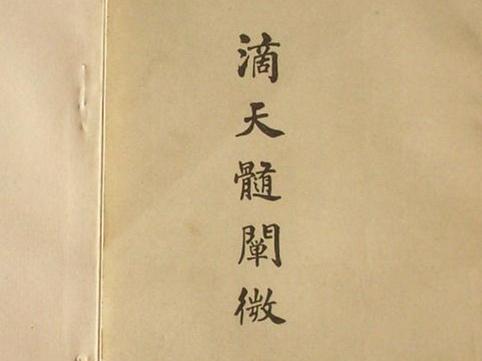 滴天髓闡微